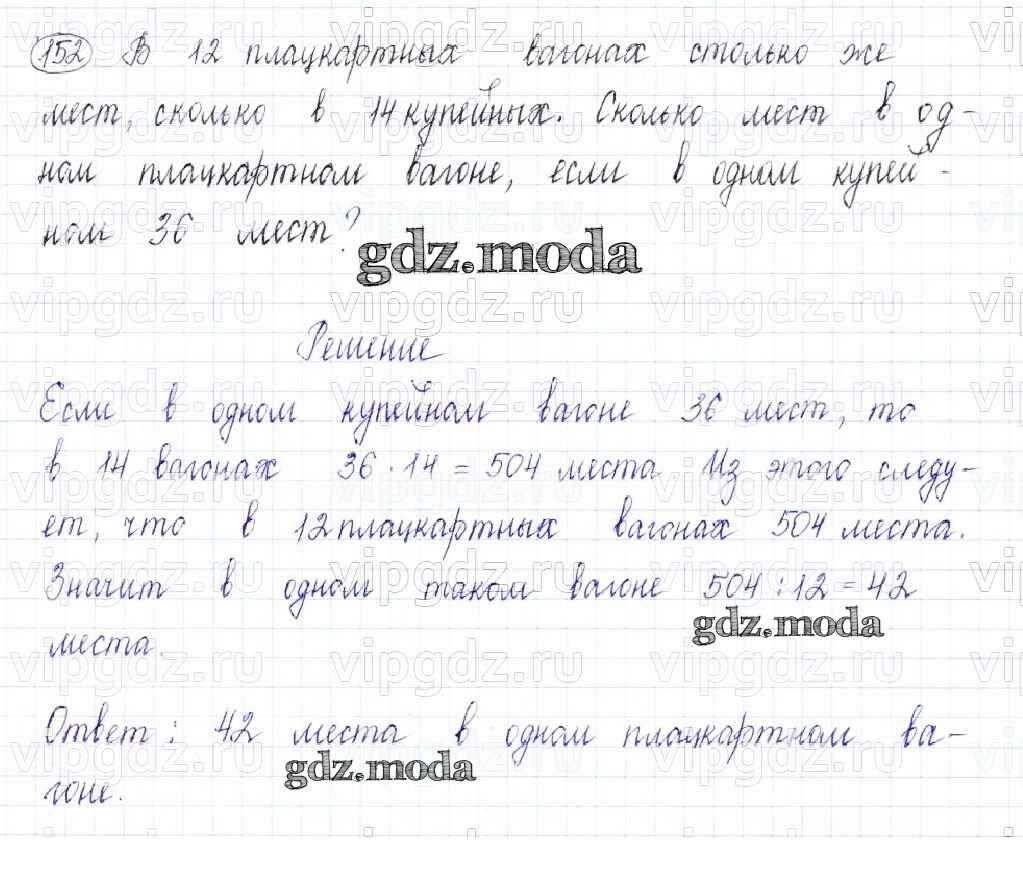 152 В 12 плацкартных вагонах столько же
мест, сколько в 14 купейных. Сколько мест в од-
ном плацкартном вагоне, если в одном купей-
ном 36 мест?
gdz.moda
Решение
Если в одном купейном вагоне 36 мест, то
в 14 вагонах 36 · 14 = 504 места Из этого следу-
ет, что в 12 плацкартных вагонах 504 места.
Значит в одном таком вагоне 504 : 12 = 42
gdz.moda
места.
Ответ: 42 места в одном плацкартном ва-
gdz.moda
гоне.
vipgdz.ru